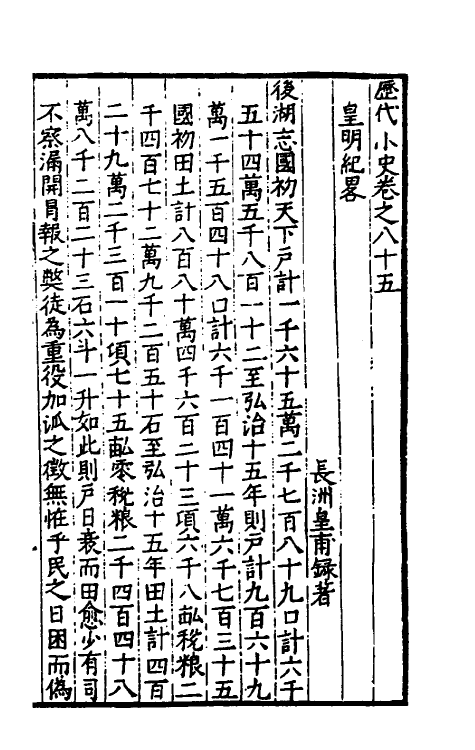 歷代小史卷之八十五
皇明紀畧
長洲皇甫録著
後湖志國初天下戸計一千六十五萬二千七百八十九口計六千
五十四萬五千八百一十二至弘治十五年則戸計九百六十九
萬一千五百四十八口計六千一百四十一萬六千七百三十五
國初田土計八百八十萬四千六百二十三項六千八畝稅粮二
千四百七十二萬九千二百五十石至弘治十五年田土計四百
二十九萬二千三百一十項七十五畝零稅粮二千四百四十八
萬八千二百二十三石六斗一升如此則戸日衰而田愈少有司
不察漏開冐報之獘徒為重役加泒之徵無恠乎民之日困而偽